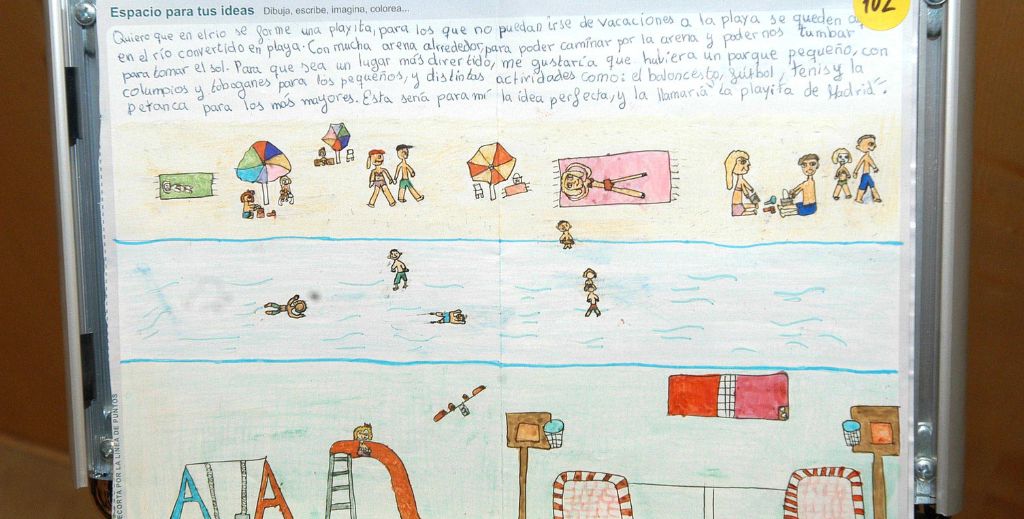 Espacio para tus ideas Dibuja, escribe, imagina, colorea...
102
Quiero que en el río se forme una playita, para los que no puedan irse de vacaciones a la playa se queden a
en el río convertido en playa. Con mucha arena alrededor, para poder caminar por la arena y podernos tumbar
para tomar el sol. Para que sea un lugar más divertido, me gustaría que hubiera un parque pequeño, con
columpios y toboganes para los pequeños, y distintas actividades como: el baloncesto, fútbol, tenis y la
petanca para los más mayores. Esta sería para mí la idea perfecta, y la llamaría "La playita de Madrid".
RECORTA POR LA LÍNEA DE PUNTOS